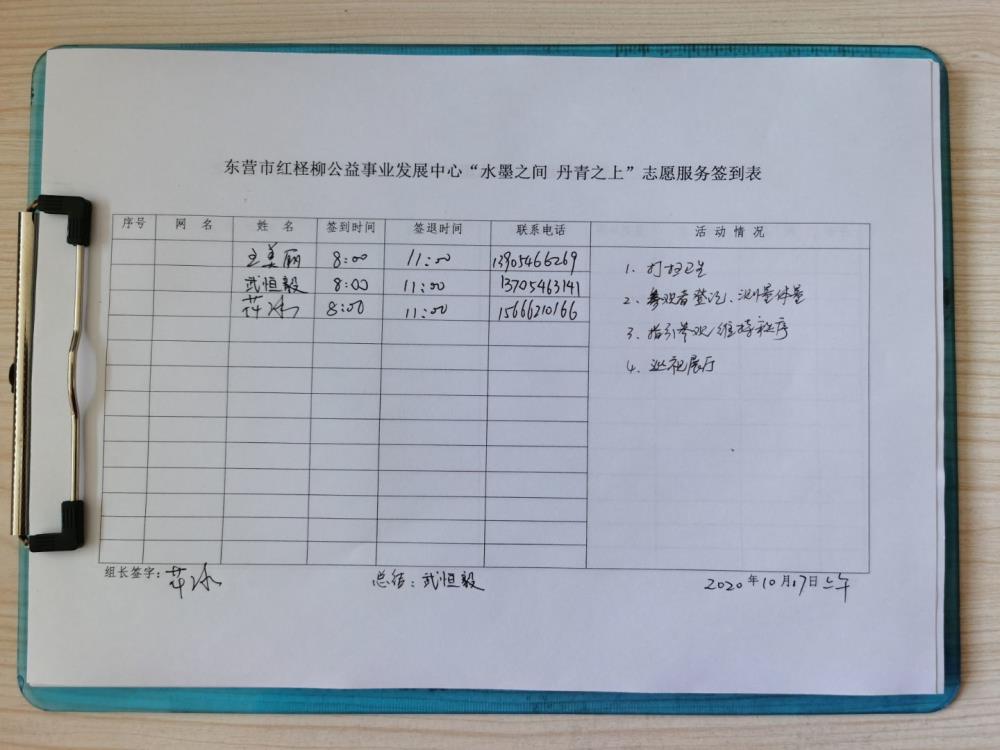 东营市红柽柳公益事业发展中心“水墨之间 丹青之上”志愿服务签到表
序号 网 名 姓 名 签到时间 签退时间 联系电话 活 动 情 况
王美丽 8:00 11:00 13905466269
武恒毅 8:00 11:00 13705463141
8:00 11:00 15666210166
1. 打扫卫生
2. 参观者登记、测量体量
3. 指引参观/维持秩序
4. 巡视展厅
组长签字: 总结: 武恒毅 2020年10月17日上午